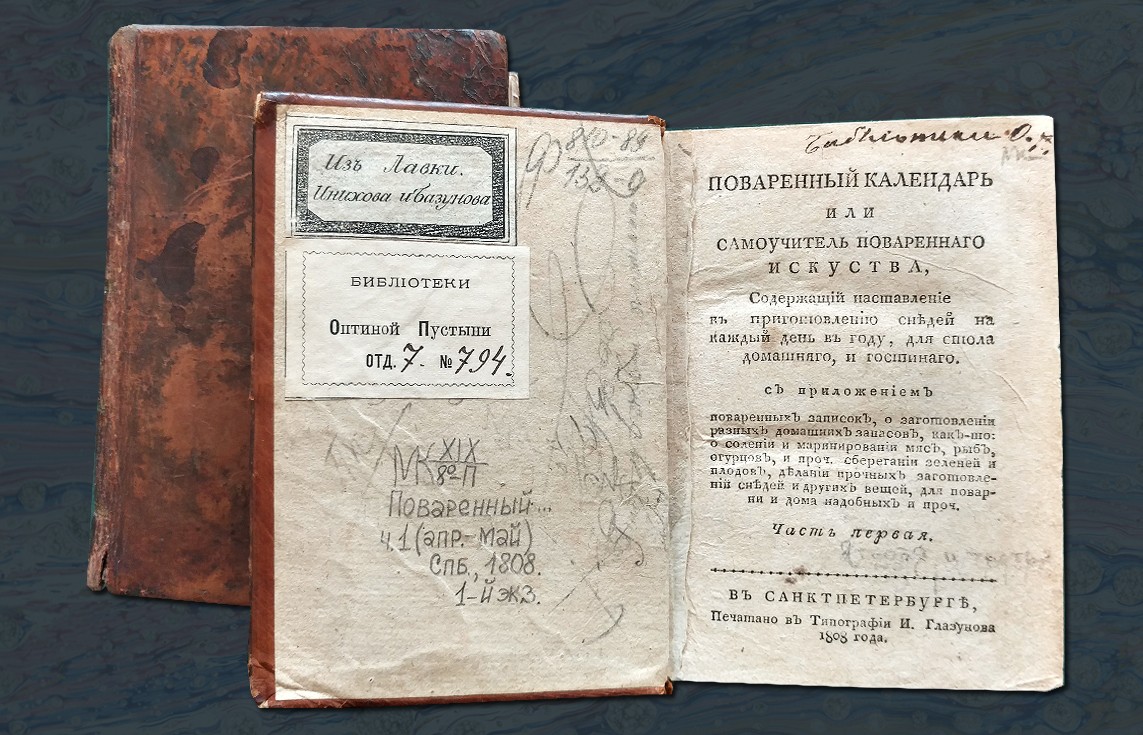 Изъ Лавки.
Инихова и Базунова
БИБЛІОТЕКИ
Оптиной Пустыни
ОТД. 7. № 794.
Ф 810-89
132-0
МК XIX
8°-П
Поваренный...
ч.1 (апр.-май)
Спб., 1808.
1-й экз.
Библіотеки О.
ПОВАРЕННЫЙ КАЛЕНДАРЬ
ИЛИ
САМОУЧИТЕЛЬ ПОВАРЕННАГО
ИСКУСТВА,
Содержащій наставленіе
въ приготовленію снѣдей на
каждый день въ году, для стола
домашняго, и гостинаго.
съ приложеніемъ
поваренныхъ записокъ, о заготовленіи
разныхъ домашнихъ запасовъ, какъ-то:
о соленіи и маринированіи мясъ, рыбъ,
огурцовъ, и проч. сбереганіи зеленей и
плодовъ, дѣланіи прочныхъ заготовле-
ній снѣдей и другихъ вещей, для повар-
ни и дома надобныхъ и проч.
Часть первая.
ВЪ САНКТПЕТЕРБУРГѢ,
Печатано въ Типографіи И. Глазунова
1808 года.